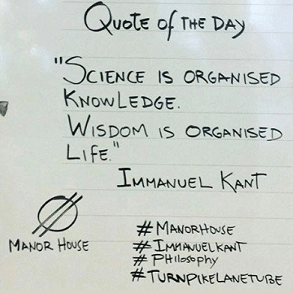 Quote of the Day
"Science is organised
Knowledge.
Wisdom is organised
Life."
Immanuel Kant
Manor House
#ManorHouse
#ImmanuelKant
#Philosophy
#TurnpikeLaneTube